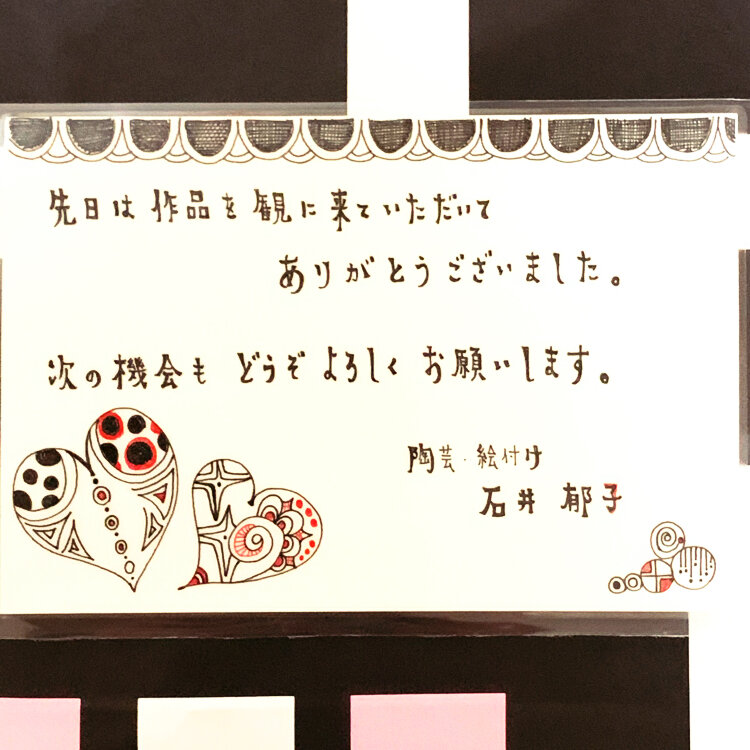 先日は作品を観に来ていただいて
ありがとうございました。
次の機会も どうぞ よろしく お願いします。
陶芸・絵付け
石井 郁子